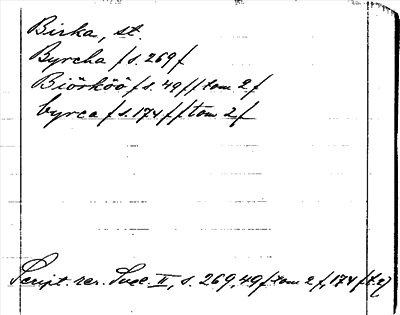 Birka, st.
Byrcha f s. 269 f
Biörköö f s. 49 f f tom 2 f
byrca f s. 174 f f tom 2 f
Script. rer. Svec. II, s. 269, 49 f tom 2 f, 174 f t. 2)